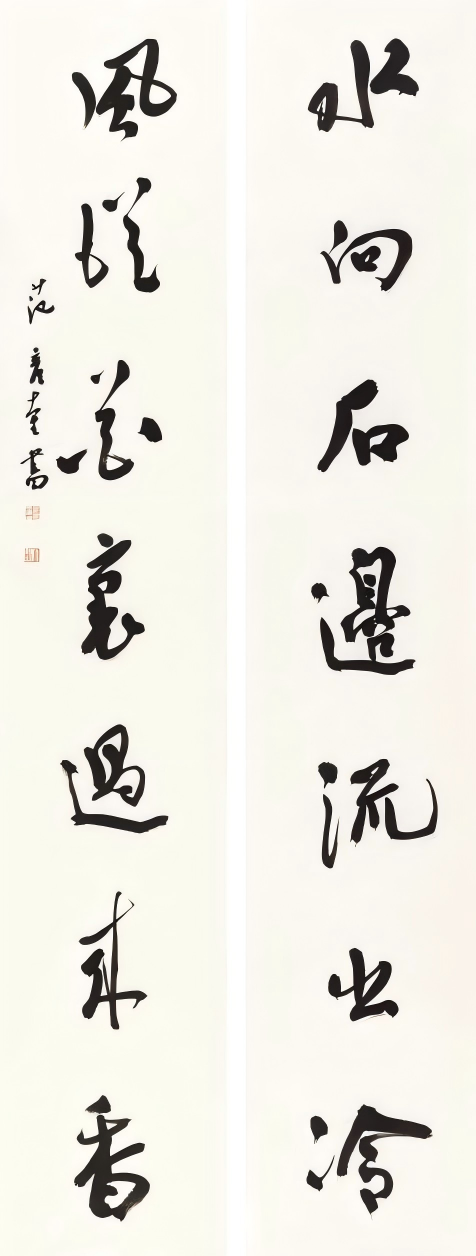 水向石邊流出冷
風從花裏過來香
范奎書